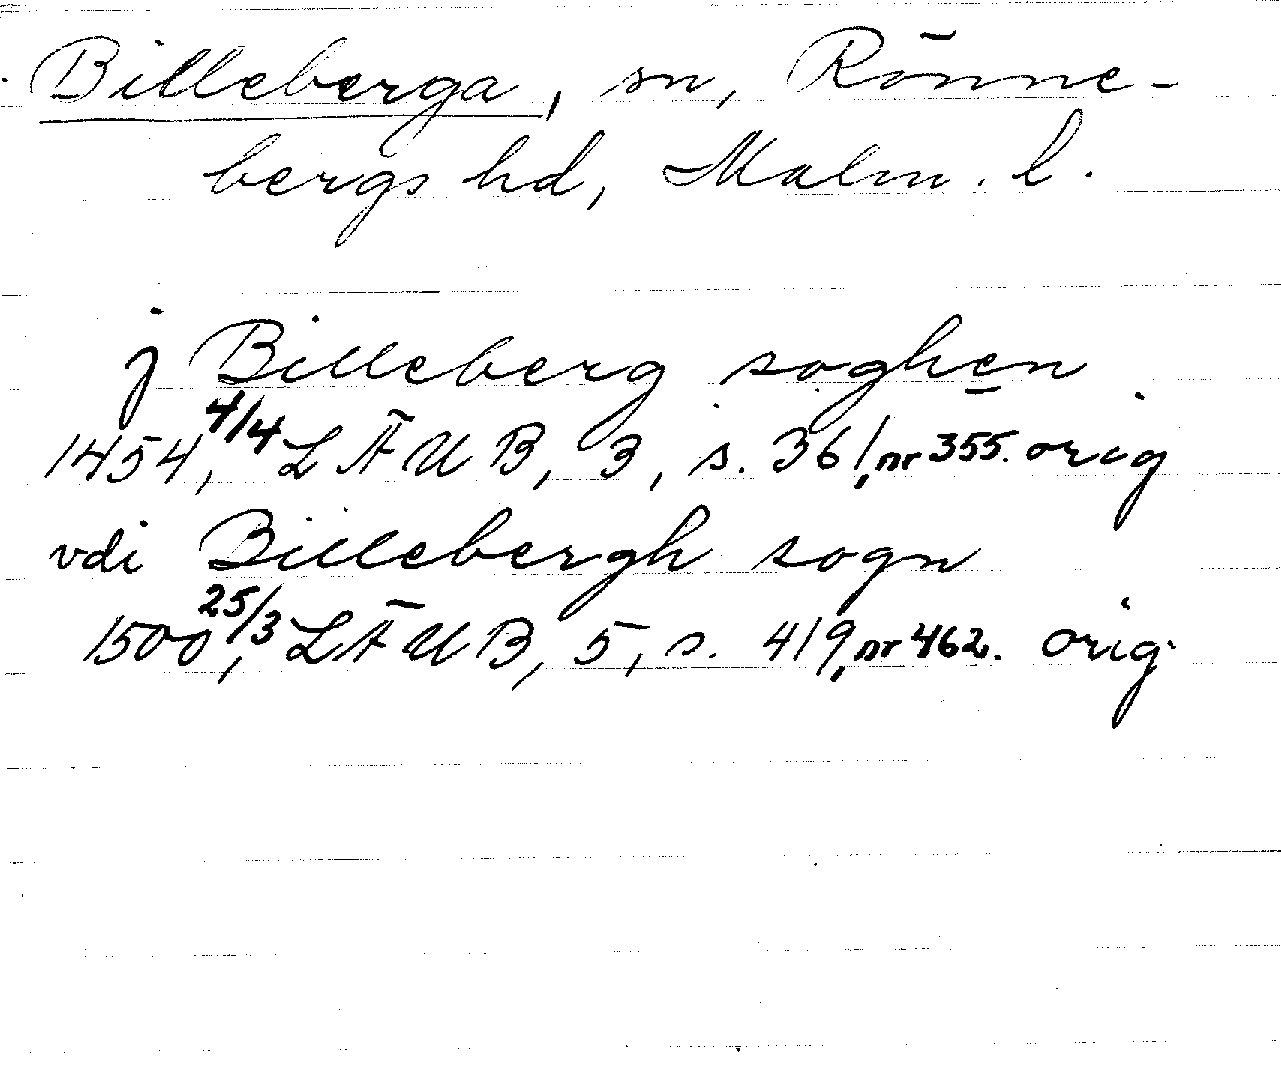 Billeberga, sn, Rönne-
bergs hd, Malm. l.
j Billeberg soghen
1454, 4/4 LÄUB, 3, s. 361, nr 355. orig
vdi Billebergh sogn
1500, 25/3 LÄUB, 5, s. 419, nr 462. orig